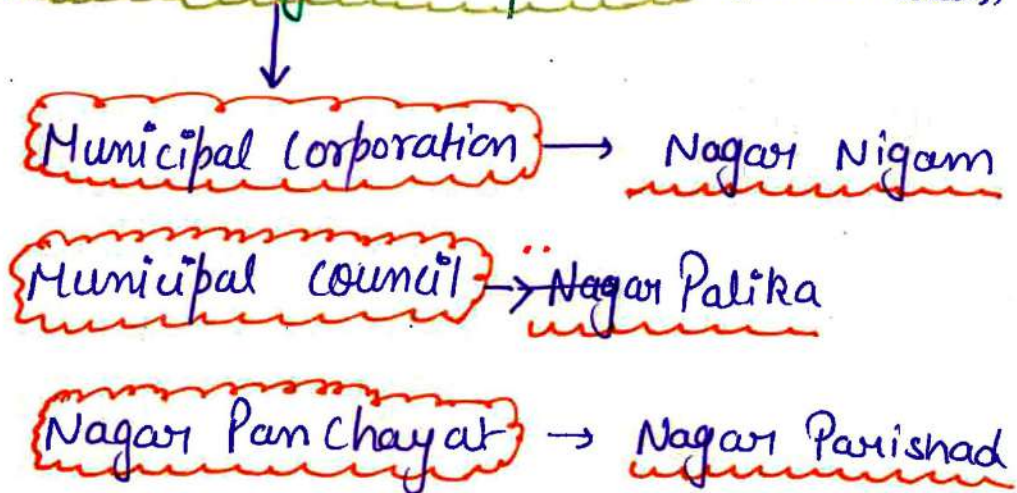 Municipal Corporation → Nagar Nigam
Municipal Council → Nagar Palika
Nagar Panchayat → Nagar Parishad